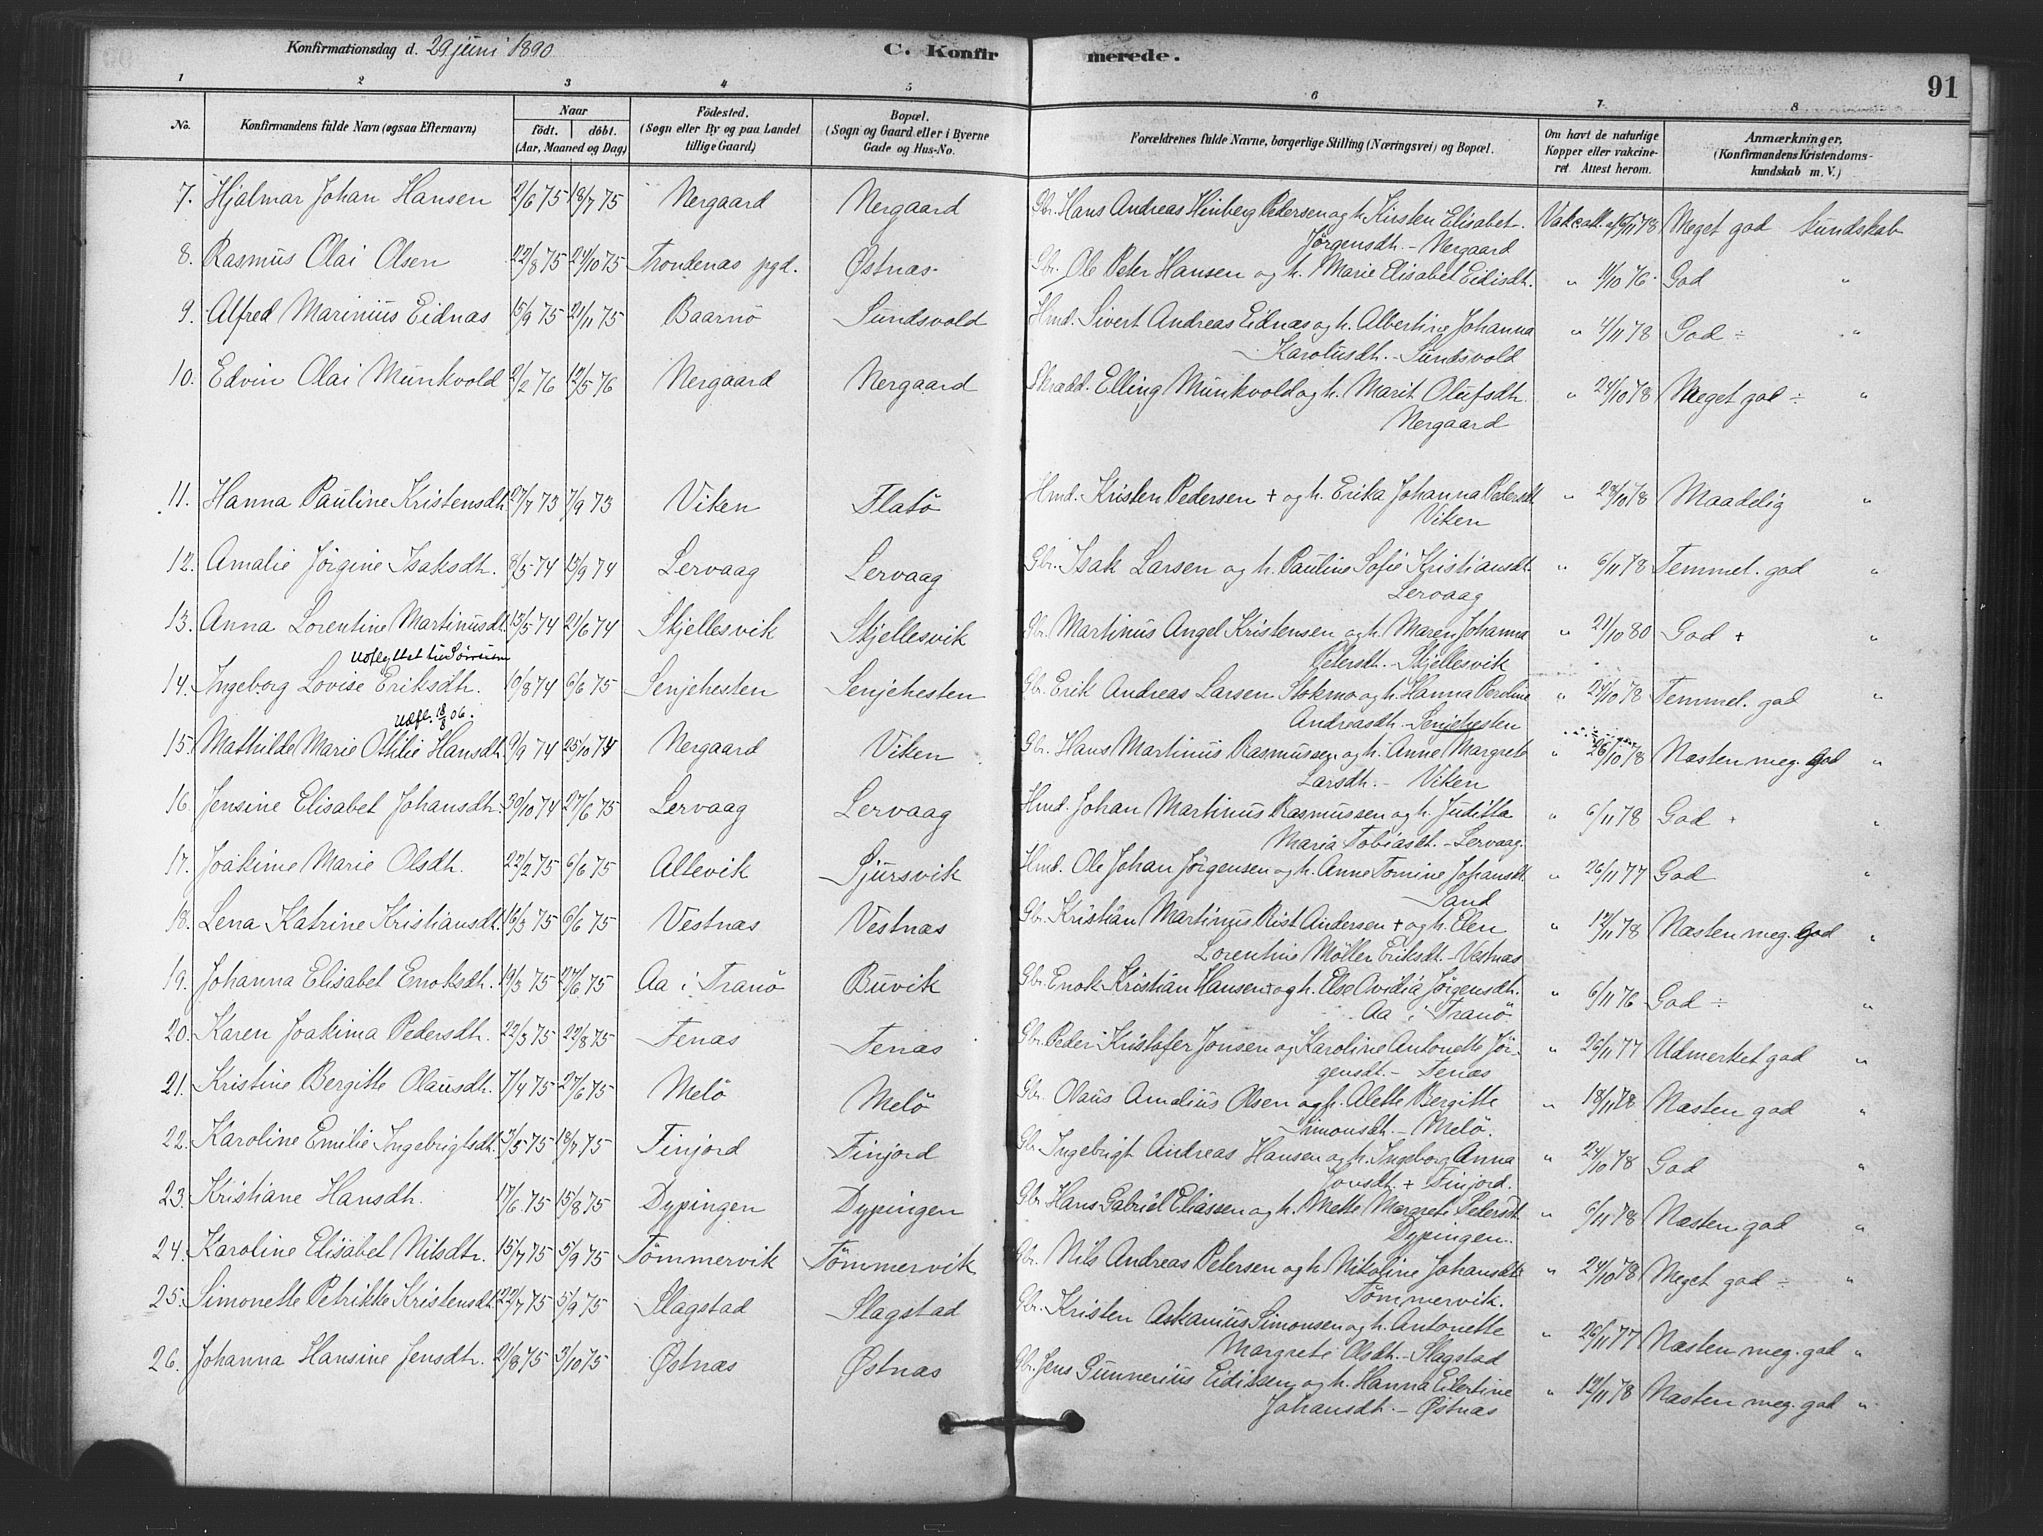 Konfirmationsdag d. 29 juni 1890 C. Konfirmerede. 91
1 2 3 4 5 6 7 8
No. Konfirmandens fulde Navn (ogsaa Efternavn) Naar födt. döbt. (Aar, Maaned og Dag) Födested. (Sogn eller By og paa Landet tillige Gaard) Bopæl. (Sogn og Gaard eller i Byerne Gade og Hus-No. Forældrenes fulde Navne, borgerlige Stilling (Næringsvei) og Bopæl. Om havt de naturlige Kopper eller vakcineret. Attest herom. Anmærkninger, (Konfirmandens Kristendomskundskab m. V.)
7. Hjalmar Johan Hansen 2/6 75 18/7 75 Nergaard Nergaard Gbr. Hans Andreas Hinberg Petersen og h. Kirsten Elisabet Vakc. att. Meget god Kundskab
Jörgensdh. - Nergaard
8. Rasmus Olai Olsen 22/8 75 24/10 75 Trondenas pgd. Østnas Gbr. Ole Peter Hansen og h. Marie Elisabet Eidisdh. " 11/10 76. God "
9. Alfred Marinius Eidnas 15/9 75 21/11 75 Baarnö Sundsvold Hmd. Sivert Andreas Eidnas og h. Albertine Johanna " 4/11 78 God ÷ "
Karolusdh. - Sundsvold
10. Edvin Olai Munkvold 2/2 76 12/5 76 Nergaard Nergaard Skrædd. Elling Munkvold og h. Marit Olufsdh. " 24/10 78 Meget god ÷ "
Nergaard
11. Hanna Pauline Kristensdh. 27/7 73 7/9 73 Viken Flatö Hmd. Kristen Pedersen + og h. Erika Johanna Pedersdh. " 28/10 78 Maadelig "
Viken
12. Amalie Jörgine Isaksdh. 8/5 74 13/9 74 Lervaag Lervaag Gbr. Isak Larsen og h. Pauline Sofie Kristiansdh. " 6/11 78 Temmel. god "
Lervaag
13. Anna Lorentine Martinusdh. 13/5 74 21/6 74 Skjellesvik Skjellesvik Gbr. Martinus Angel Kristensen og h. Maren Johanna " 21/10 80 God + "
Petersdh. - Skjellesvik
Udflyttet til Sörreisen
14. Ingeborg Lovise Eriksdh. 10/8 74 6/6 75 Senjehesten Senjehesten Gbr. Erik Andreas Larsen Stokmo og h. Hanna Peroline " 24/10 78 Temmel. god "
Andreasdh. - Senjehesten
Udfl. 18/8 06.
15. Mathilde Marie Othilie Hansdh. 9/9 74 25/10 74 Nergaard Viken Gbr. Hans Martinus Rasmussen og h. Anne Margrete " 26/10 78 Næsten meg. God "
Larsdh. - Viken
16. Jensine Elisabet Johansdh. 30/10 74 27/6 75 Lervaag Lervaag Hmd. Johan Martinus Rasmussen og h. Juditta " 6/11 78 God + "
Maria Tobiasdt. - Lervaag.
17. Joakime Marie Olsdh. 22/2 75 6/6 75 Altevik Sjursvik Hmd. Ole Johan Jörgensen og h. Anne Tomine Johansdt. " 26/11 77 God "
Sand
18. Lena Katrine Kristiansdh. 16/3 75 6/6 75 Vestnas Vestnas Gbr. Kristian Martinus Rist Andersen + og h. Elen " 12/11 78 Næsten meg. God "
Lorentine Möller Eriksdt. - Vestnas
19. Johanna Elisabet Enoksdh. 19/3 75 27/6 75 Aa i Tranö Buvik Gbr. Enok Kristian Hansen og h. Else Ovidia Jörgensdh. " 6/11 76 God ÷ "
Aa i Tranö
20. Karen Joakima Pedersdh. 22/3 75 22/8 75 Tenas Tenas Gbr. Peder Kristofer Jonsen og Karoline Antonette Jör- " 26/11 77 Udmerket god "
gensdt. - Tenas
21. Kristine Bergitte Olausdh. 7/4 75 27/6 75 Melö Melö Gbr. Olaus Amalius Olsen og h. Alette Bergitte " 18/11 78 Næsten god "
Simonsdt. - Melö.
22. Karoline Emilie Ingebrigtsdt. 3/5 75 18/7 75 Finjord Finjord Gbr. Ingebrigt Andreas Hansen og h. Ingeborg Anna " 24/10 78 God "
Jonsdt. + Finjord.
23. Kristiane Hansdh. 17/6 75 15/8 75 Dypingen Dypingen Gbr. Hans Gabriel Eliassen og h. Mette Margrete Pedersdt. " 5/11 78 Næsten god "
Dypingen.
24. Karoline Elisabet Nilsdtr. 15/7 75 5/9 75 Tömmervik Tömmervik Gbr. Nils Andreas Petersen og h. Nikoline Johansdt. " 24/10 78 Meget god ÷ "
Tömmervik.
25. Simonette Petrikke Kristensdt. 22/7 75 5/9 75 Slagstad Slagstad Gbr. Kristen Askanius Simonsen og h. Antonette " 26/11 77 Næsten meg. god "
Margrete Olsdh. - Slagstad
26. Johanna Hansine Jensdh. 21/8 75 3/10 75 Østnas Østnas Gbr. Jens Gunnerius Eidissen og h. Hanna Elertine " 12/11 78 Næsten meg. god "
Johansdh. - Østnas